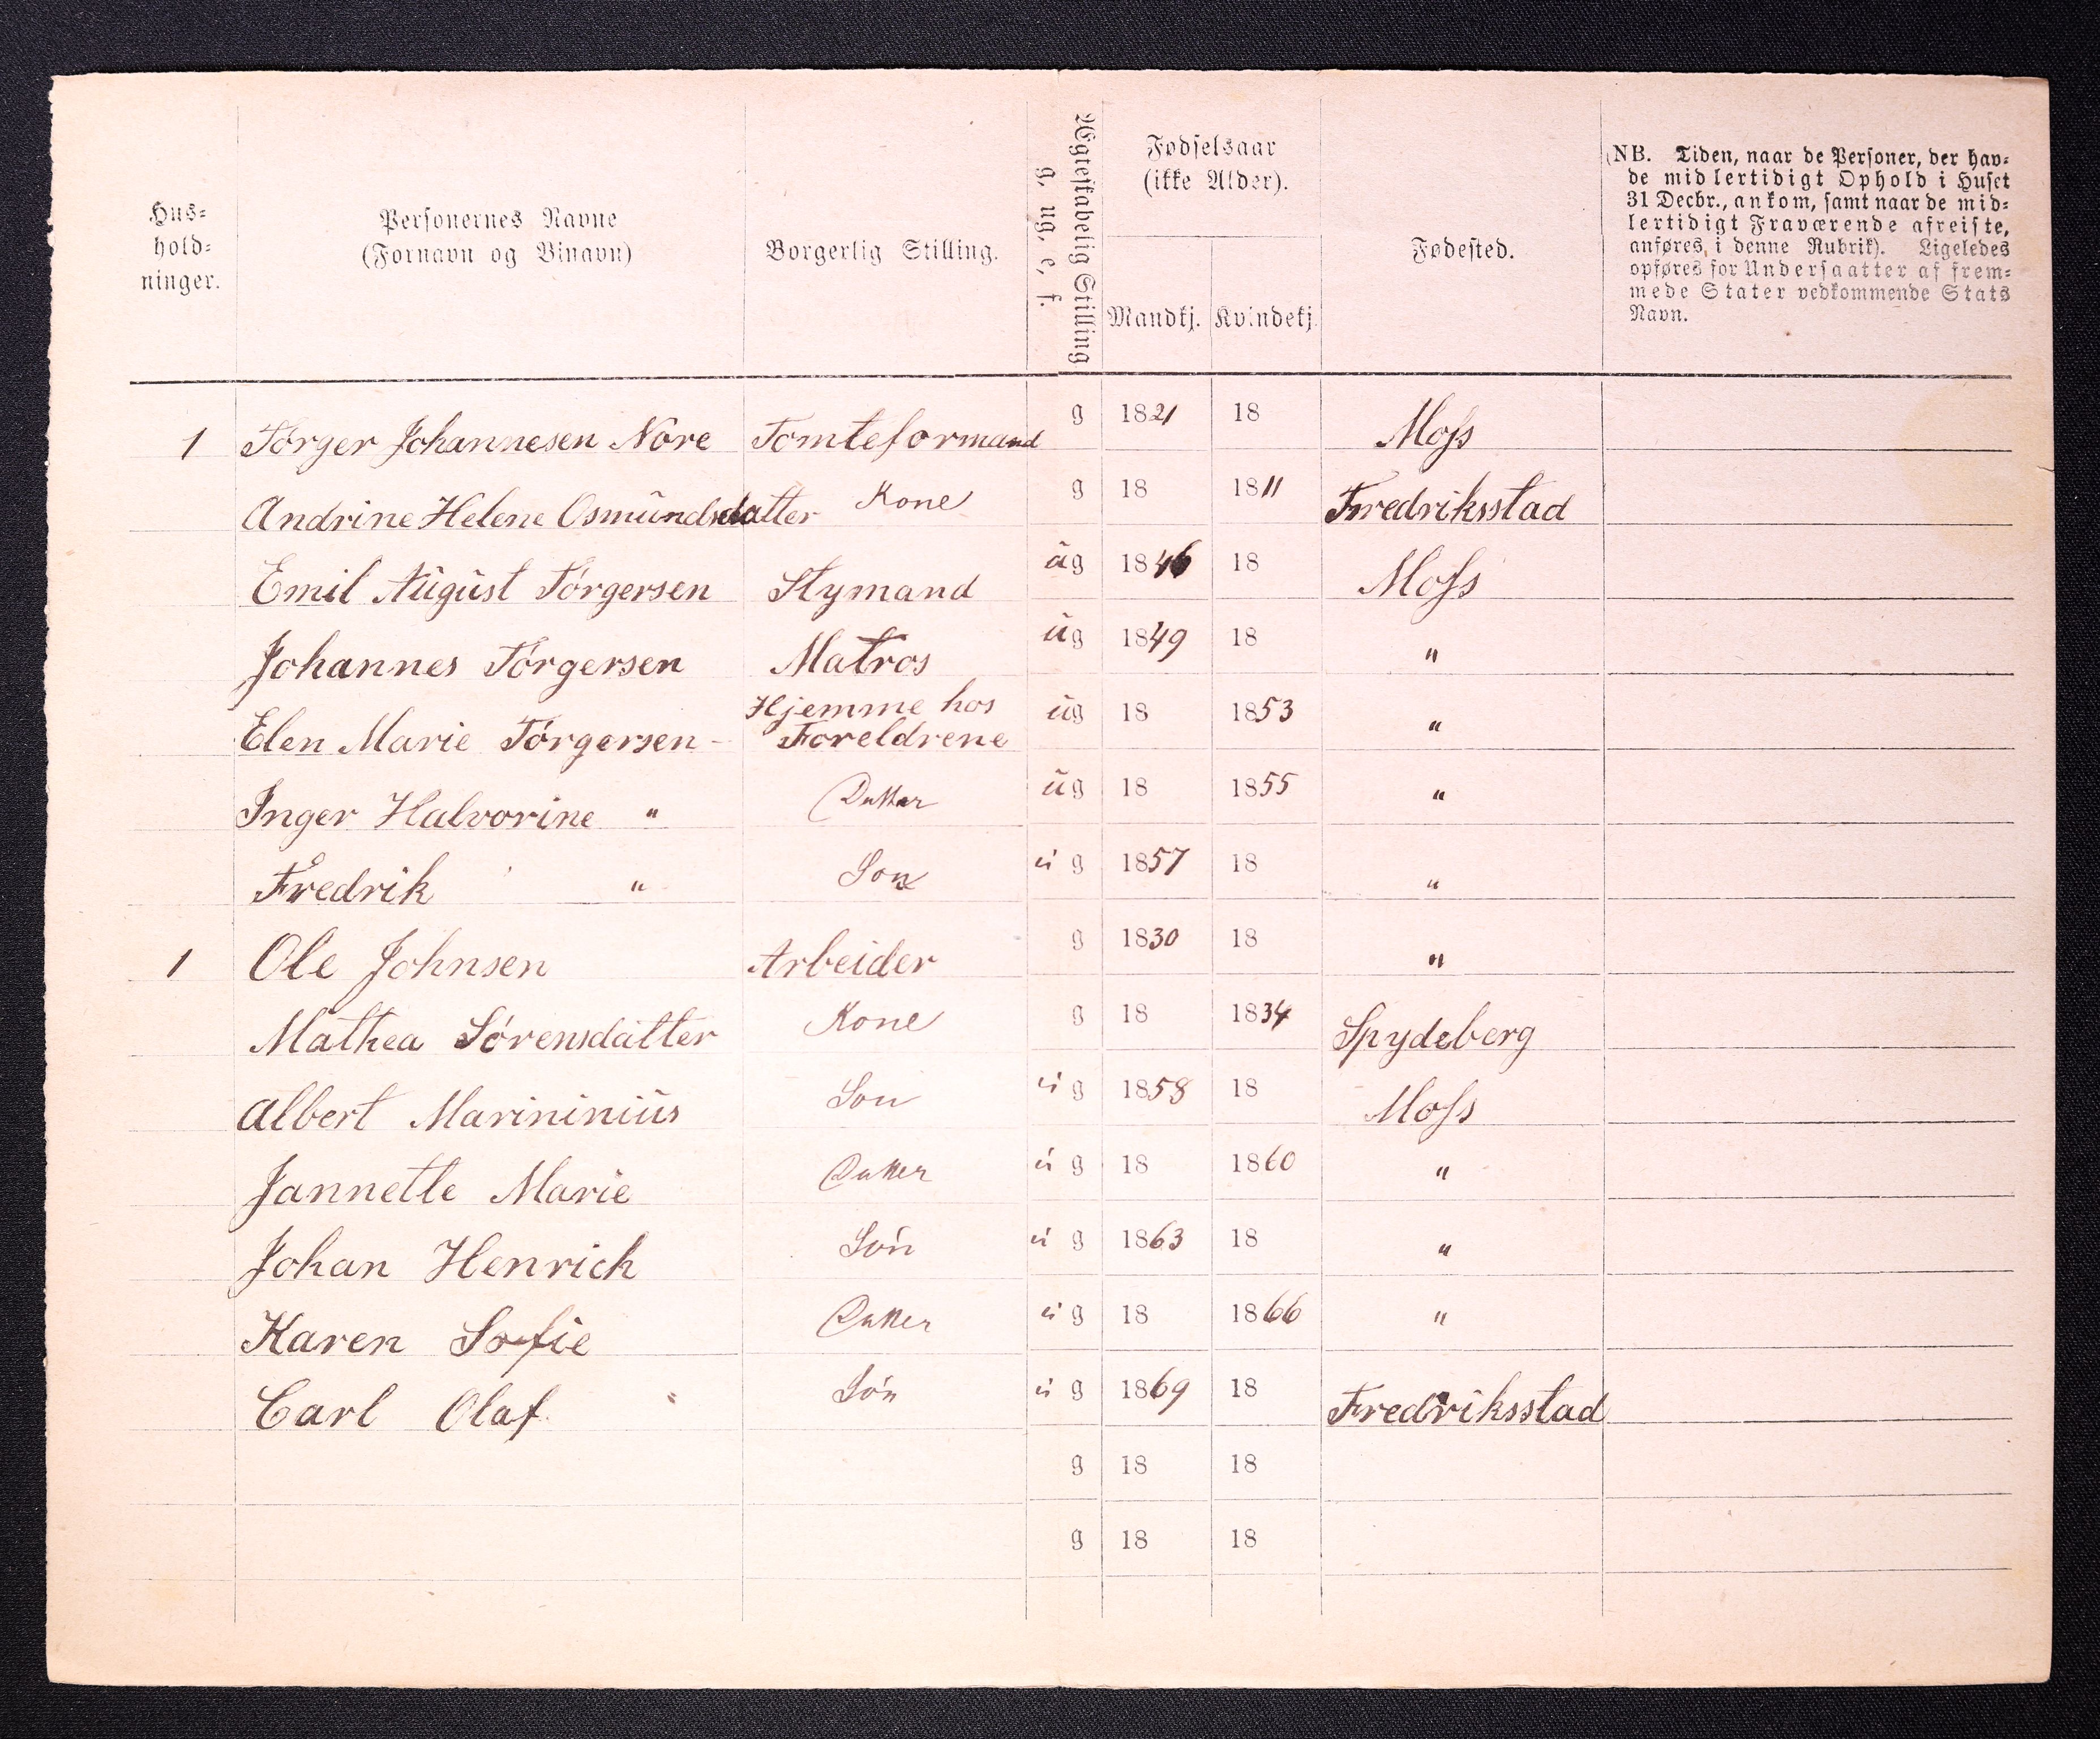 Hus-
hold-
ninger.
Personernes Navne
(Fornavn og Binavn)
Borgerlig Stilling.
Ægteskabelig Stilling
g. ug. e. f.
Fødselsaar
(ikke Alder).
Mandkj. Kvindekj.
Fødested.
(NB. Tiden, naar de Personer, der hav-
de midlertidigt Ophold i Huset
31 Decbr., ankom, samt naar de mid-
lertidigt Fraværende afreiste,
anføres i denne Rubrik). Ligeledes
opføres for Undersaatter af frem-
mede Stater vedkommende Stats
Navn.
1 Törger Johannesen Nore Tomteformand g 1821 18 Moss
Andrine Helene Osmundsdatter Kone g 18 1811 Fredriksstad
Emil August Törgersen Stymand ug 1846 18 Moss
Johannes Törgersen Matros ug 1849 18 "
Elen Marie Törgersen - Hjemme hos Foreldrene ug 18 1853 "
Inger Halvorine " Datter ug 18 1855 "
Fredrik " Son ug 1857 18 "
1 Ole Johnsen Arbeider g 1830 18 "
Mathea Sörensdatter Kone g 18 1834 Spydeberg
Albert Marininius Son ug 1858 18 Moss
Jannette Marie Datter ug 18 1860 "
Johan Henrich Són ug 1863 18 "
Karen Sofie Datter ug 18 1866 "
Carl Olaf Són ug 1869 18 Fredriksstad
g 18 18
g 18 18